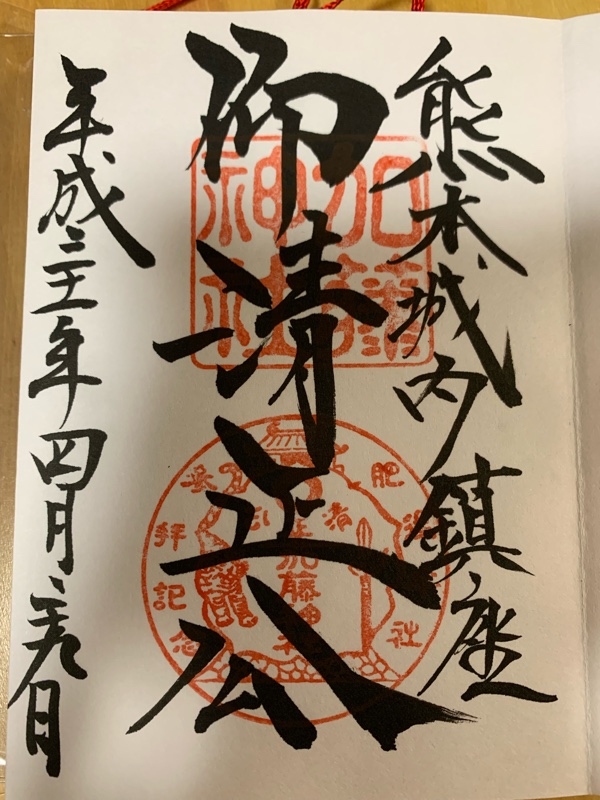 熊本城内鎮座
仰清正公
平成三十一年四月二十九日
加藤
神社
加藤神社
拝記念